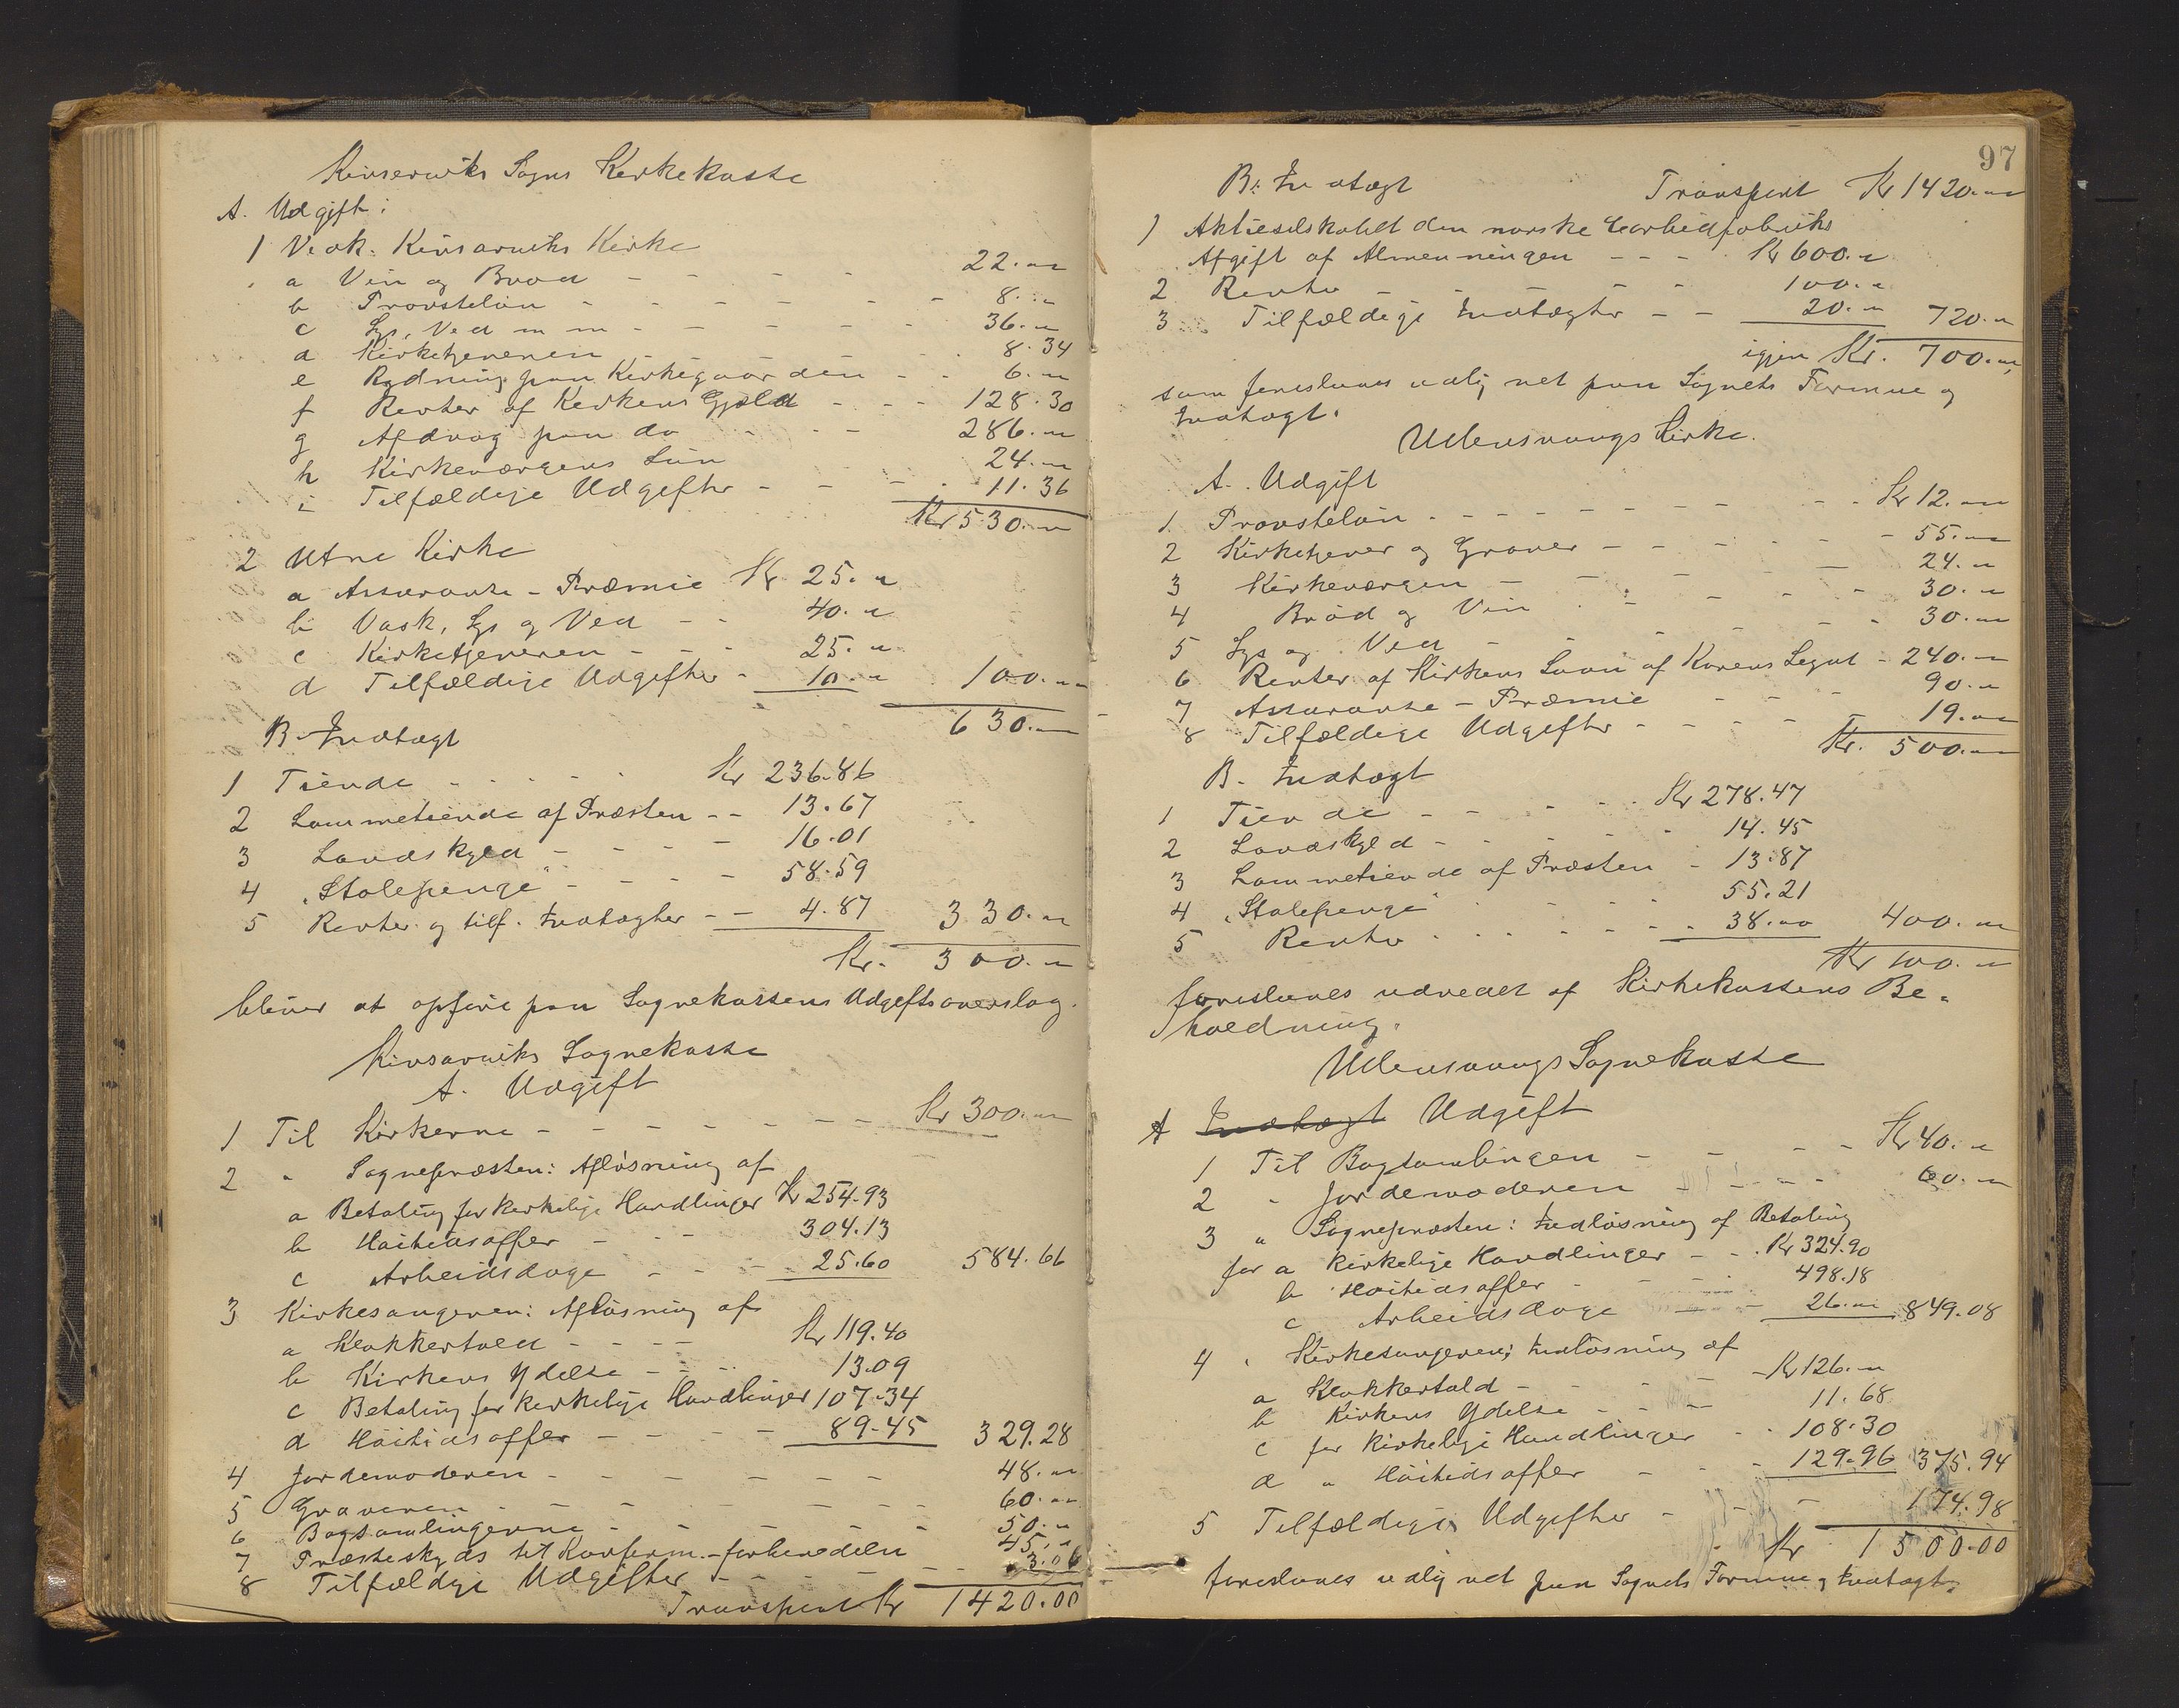 Kinserviks Sogns Kirkekasse
A. Udgift:
1 Vedk. Kinsarviks Kirke
a Vin og Brød - - - - 22."
b Provsteløn - - - - - - 8."
c Lys, Ved m m - - - - - 36."
d Kirketjeneren - - - - 8.34
e Rydning paa Kirkegaarden - - 6."
f Renter af Kirkens Gjæld - - - 128.30
g Afdrag paa do - - - 286."
h Kirkeværgens Løn - - - 24."
i Tilfældige Udgifter - - - 11.36
Kr 530."
2 Utne Kirke
a Assurance-Præmie Kr 25."
b Vask, Lys og Ved - - 40."
c Kirketjeneren - - - 25."
d Tilfældige Udgifter - 10." 100."
630."
B Indtægt
1 Tiende - - - - - Kr 236.86
2 Lammetiende af Præsten - - 13.67
3 Landskyld - - - - 16.01
4 "Stolepenge" - - - - 58.59
5 Renter og tilf. Indtægter - - 4.87 330."
Kr. 300."
bliver at opføre paa Sognekassens Udgiftsoverslag.
Kinsarviks Sognekasse
A. Udgift
1 Til Kirkerne - - - - - - - Kr 300."
2 " Sognepræsten: Afløsning af
a Betaling for kirkelige Handlinger Kr 254.93
b Høitidsoffer - - - 304.13
c Arbeidsdage - - - 25.60 584.66
3 Kirkesangeren: Afløsning af
a Klokkertold - - - - Kr 119.40
b Kirkens Ydelse - - - 13.09
c Betaling for kirkelige Handlinger 107.34
d Høitidsoffer - - - - 89.45 329.28
4 Jordemoderen - - - - - - - 48."
5 Graveren - - - - - - - 60."
6 Bogsamlingerne - - - - - - 50."
7 Præsteskyds til Konfirm.-forberedelse 45."
8 Tilfældige Udgifter - - - - - - 3.06
Transport Kr 1420.00
97
B: Indtægt Transport Kr 1420."
1 Aktieselskabet den norske Carbidfabriks
Afgift af Almenningen - - - Kr 600."
2 Renter - - - - - 100."
3 Tilfældige Indtægter - - 20." 720."
igjen Kr. 700."
som foreslaaes udlignet paa Sognets Formue og
Indtægt.
Ullensvangs Kirke.
A. Udgift
1. Provsteløn - - - - - - - - - Kr 12."
2 Kirketjener og Graver - - - - - - 55."
3 Kirkeværgen - - - - - 24."
4 Brød og Vin - - - - - 30."
5 Lys og Ved - - - - - 30."
6 Renter af Kirkens Laan af Legat - 240."
7 Assurance-Præmie - - - 90."
8 Tilfældige Udgifter - - - - - 19."
Kr. 500."
B. Indtægt
1 Tiende - - - - - Kr 278.47
2 Landskyld - - - - - 14.45
3 Lammetiende af Præsten - 13.87
4 "Stolepenge" - - - - 55.21
5 Renter - - - - - - - 38.00 400."
Kr 100."
foreslaaes udredet af Kirkekassens Be-
holdning.
Ullensvangs Sognekasse
A Indtægt Udgift
1 Til Bogsamlingen - - - - Kr 40."
2 " Jordemoderen - - - - - 60."
3 " Sognepræsten: Indløsning af Betaling
for a kirkelige Handlinger - - Kr 324.90
b Høitidsoffer - - - - 498.18
c Arbeidsdage - - 26." 849.08
4 " Kirkesangeren; Indløsning af
a Klokkertold - - - - - Kr 126."
b Kirkens Ydelse - - - 11.68
c for kirkelige Handlinger - - 108.30
d " Høitidsoffer - - - 129.96 375.94
5 Tilfældige Udgifter - - - 174.98
Kr 1500.00
foreslaaes udlignet paa Sognets Formue og Indtægt.